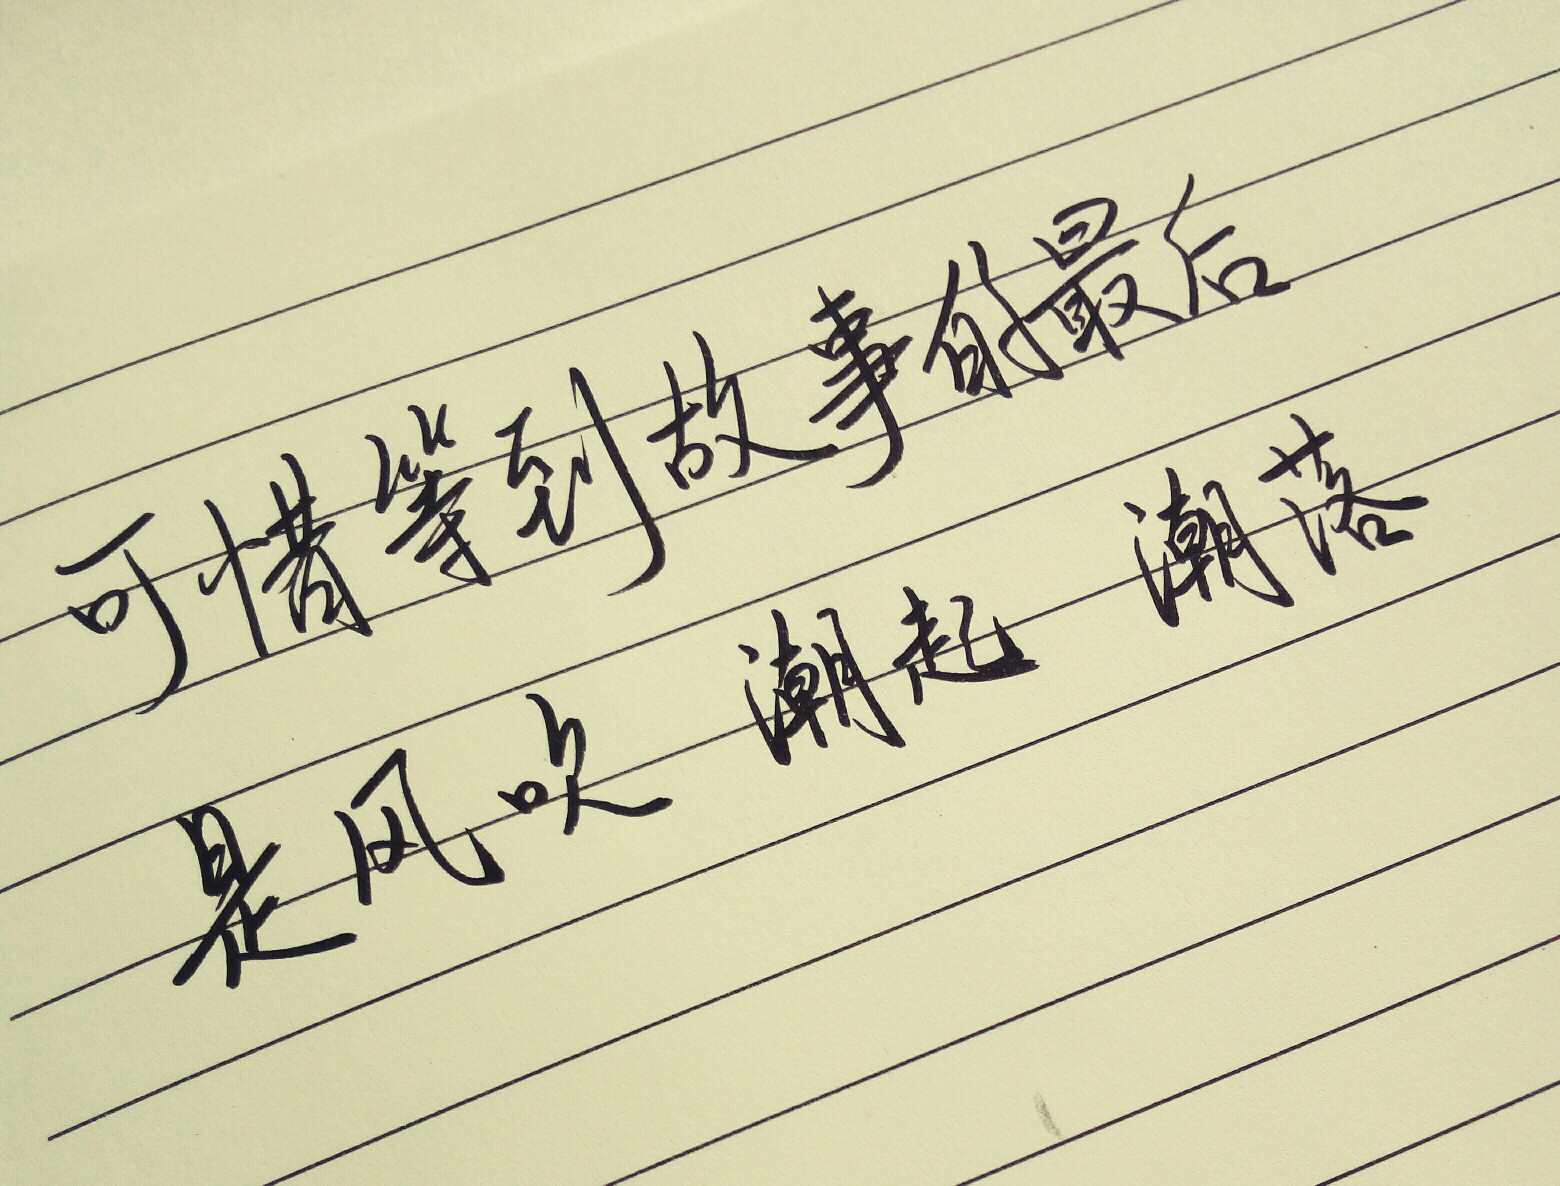 可惜等到故事的最后
是风吹 潮起 潮落